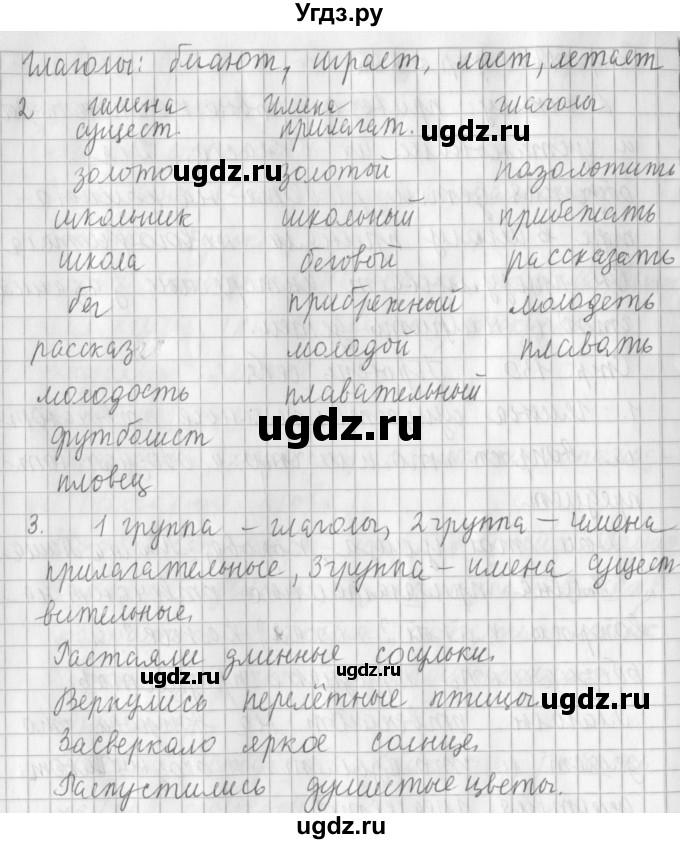 Угдз.ру
Глаголы: бегают, играет, ласт, летает
2 имена имена глаголы
сущест. прилагат. ugdz.ru
ugdz.ru
золото золотой позолотить
школьник школьный прибежать
школа беговой рассказать
бег прибрежный молодеть
рассказ молодой плавать
молодость плавательный
футболист ugdz.ru
пловец
3. 1 группа – глаголы, 2 группа – имена
прилагательные, 3 группа – имена сущест
вительные.
Растаяли длинные сосульки.
ugdz.ru ugdz.ru
Вернулись перелётные птицы ugdz.ru
Засверкало яркое солнце.
Распустились душистые цветы.
ugdz.ru